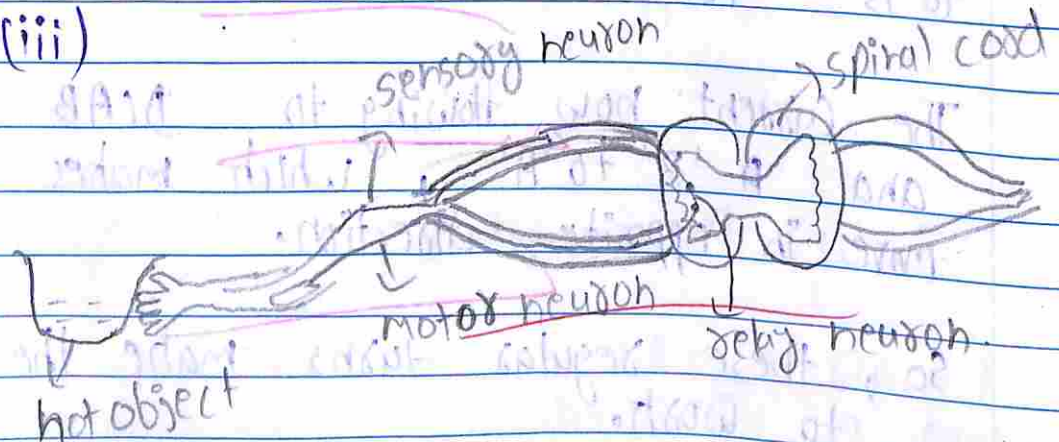 (iii)
sensory neuron
spinal cord
motor neuron
relay neuron.
hot object